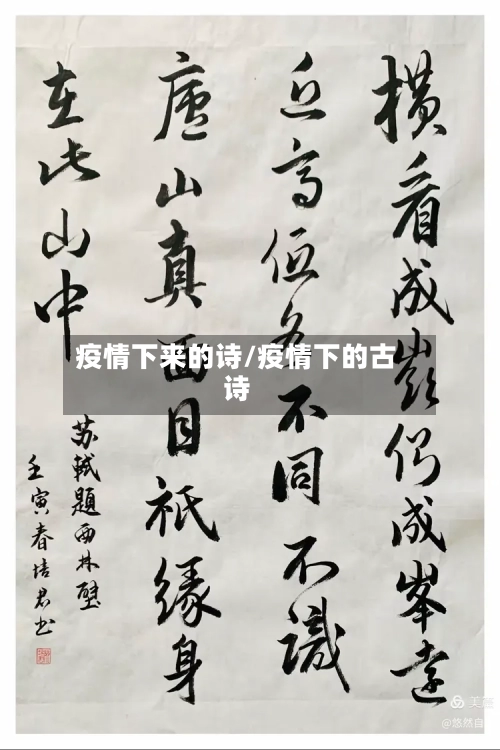 横看成嶺侧成峯遠
近高低各不同不識
廬山真面目祇緣身
在此山中
苏軾題西林壁
壬寅春培君书
疫情下来的诗/疫情下的古
诗
美篇
@悠然自